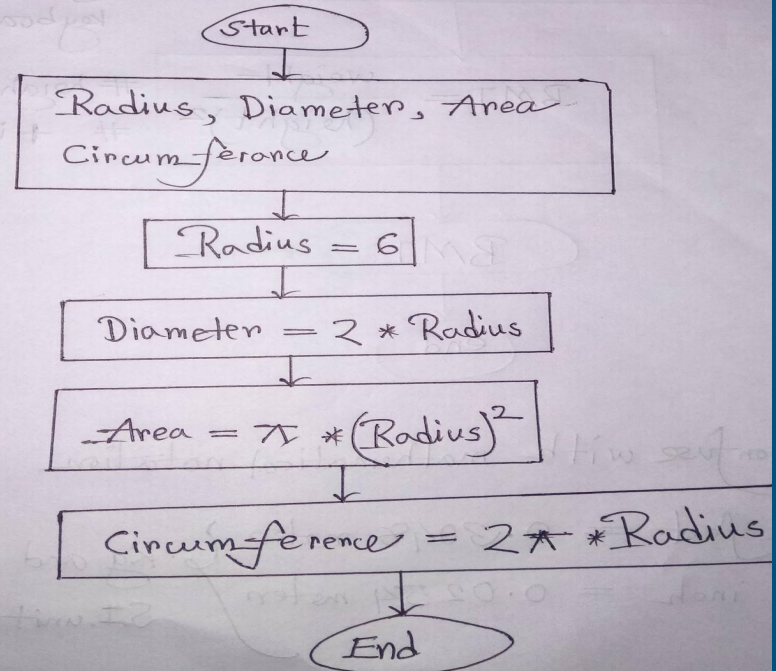 Start
Radius, Diameter, Area
Circumferance
Radius = 6
Diameter = 2 * Radius
Area = π * (Radius)²
Circumference = 2π * Radius
End